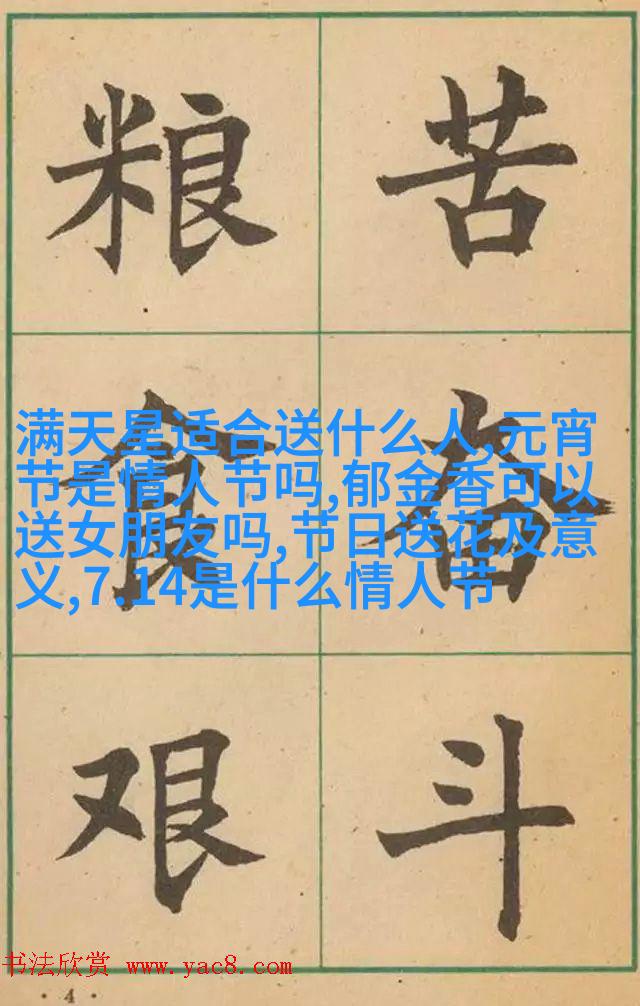 粮食艰
苦奋斗
满天星适合送什么人,元宵
节是情人节吗,郁金香可以
送女朋友吗,节日送花及意
义,7.14是什么情人节
书法欣赏 www.yac8.com
· 4 ·